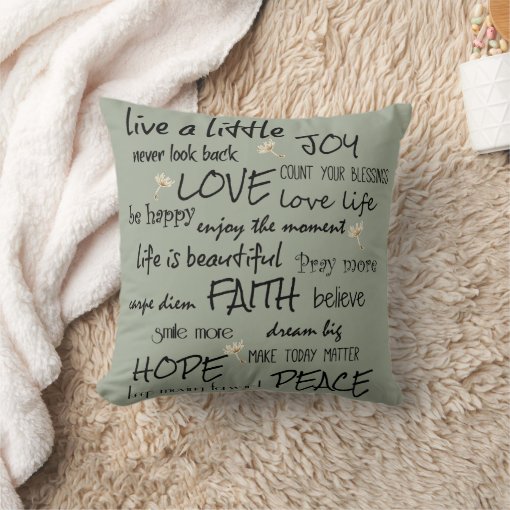 live a little
JOY
never look back
COUNT YOUR BLESSINGS
LOVE love life
be happy
enjoy the moment
life is beautiful Pray more
carpe diem FAITH believe
smile more dream big
HOPE MAKE TODAY MATTER
keep moving forward PEACE